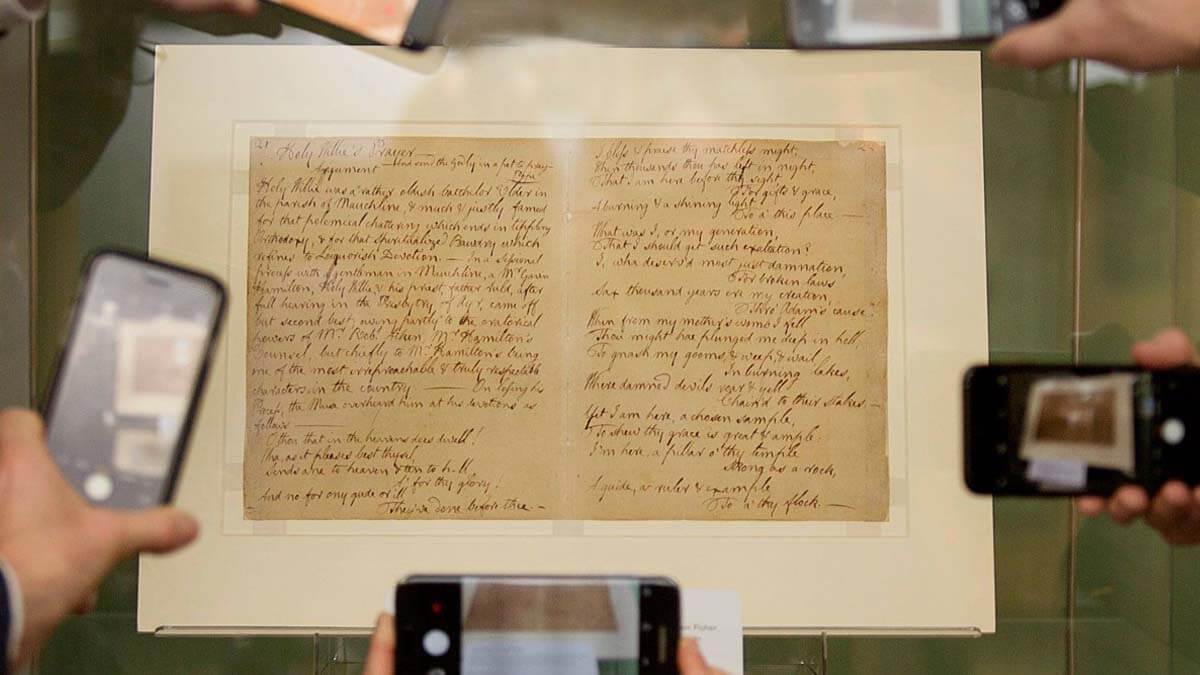 Holy Willie's Prayer —
Argument — And send the Godly in a pet to pray —
Pope
Holy Willie was a rather oldish batchelor Elder in
the parish of Mauchline, & much & justly famed
for that polemical chattering which ends in tippling
Orthodoxy, & for that Spiritualized Bawdry which
refines to Liquorish Devotion. — In a Sessional
process with a gentleman in Mauchline, a Mr Gavin
Hamilton, Holy Willie, & his priest, father Auld, after
full hearing in the Presbytry of Ayr, came off
but second best, owing partly to the oratorical
powers of Mr Robt Aiken, Mr Hamilton's
Counsel, but chiefly to Mr Hamilton's being
one of the most irreproachable & truly respectable
characters in the country. — On losing his
Process, the Muse overheard him at his devotions as
follows —
O thou that in the heavens does dwell!
Wha, as it pleases best thysel,
Sends ane to heaven & ten to h-ll,
A' for thy glory!
And no for ony gude or ill
They've done before thee. —
I bless & praise thy matchless might,
When thousands thou has left in night,
That I am here before thy sight,
For gifts & grace,
A burning & a shining light
To a' this place —
What was I, or my generation,
That I should get such exaltation?
I, wha deserv'd most just damnation,
For broken laws
Sax thousand years ere my creation,
Thro' Adam's cause!
When from my mother's womb I fell,
Thou might hae plunged me deep in hell,
To gnash my gooms, & weep, & wail,
In burning lakes,
Where damned devils roar & yell
Chain'd to their stakes. —
Yet I am here, a chosen sample,
To shew thy grace is great & ample:
I'm here, a pillar o' thy temple
Strong as a rock,
A guide, a ruler & example
To a' thy flock. —
Fisher